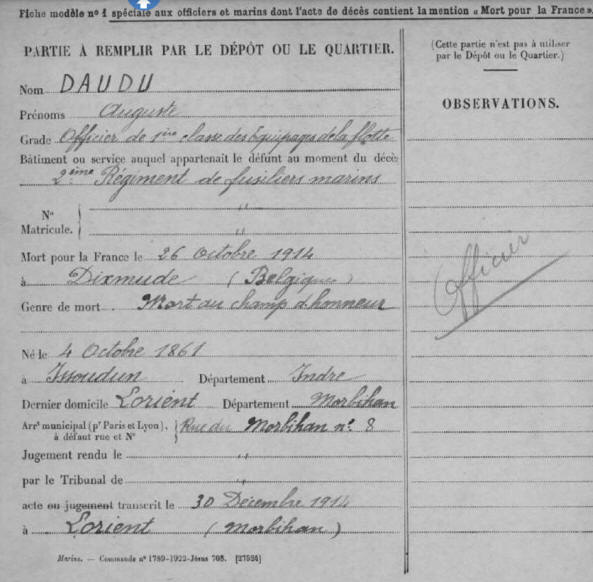 Fiche modèle nº 1 spéciale aux officiers et marins dont l'acte de décès contient la mention « Mort pour la France ».
PARTIE À REMPLIR PAR LE DÉPÔT OU LE QUARTIER.
Nom DAUDU
Prénoms Auguste
Grade Officier de 1ère classe des Equipages de la flotte
Bâtiment ou service auquel appartenait le défunt au moment du décès
2ème Régiment de fusiliers marins
Nº "
Matricule. "
Mort pour la France le 26 Octobre 1914
à Dixmude (Belgique)
Genre de mort Mort au champ d'honneur
Né le 4 Octobre 1861
à Issoudun Département Indre
Dernier domicile Lorient Département Morbihan
Arrt municipal (pr Paris et Lyon), à défaut rue et Nº Rue du Morbihan nº 8
Jugement rendu le "
par le Tribunal de "
acte ou jugement transcrit le 30 Décembre 1914
à Lorient (Morbihan)
Marine. — Commande nº 1789-1922-Jésus 708. [27524]
(Cette partie n'est pas à utiliser
par le Dépôt ou le Quartier.)
OBSERVATIONS.
Officier